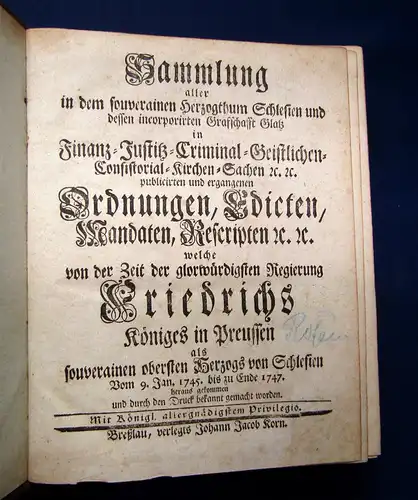 Sammlung
aller
in dem souverainen Herzogthum Schlesien und
dessen incorporirten Grafschafft Glatz
in
Finanz-Justitz-Criminal-Geistlichen-
Consistorial-Kirchen-Sachen ꝛc. ꝛc.
publicirten und ergangenen
Ordnungen, Edicten,
Mandaten, Rescripten ꝛc. ꝛc.
welche
von der Zeit der glorwürdigsten Regierung
Friedrichs
Königes in Preussen
als
souverainen obersten Herzogs von Schlesien
Vom 9. Jan. 1745. bis zu Ende 1747.
heraus gekommen
und durch den Druck bekannt gemacht worden.
Mit Königl. allergnädigsten Privilegio.
Breßlau, verlegts Johann Jacob Korn.